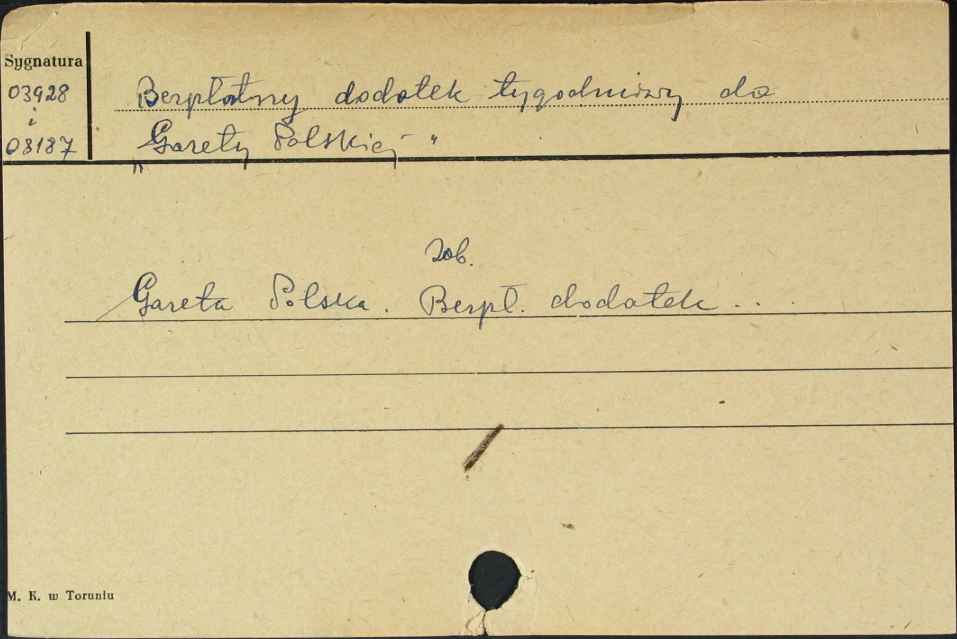 Sygnatura
03928
i
08187
Bezpłatny dodatek tygodniowy do
„Gazety Polskiej"
zob.
Gazeta Polska. Bezpł. dodatek ...
M. K. w Toruniu